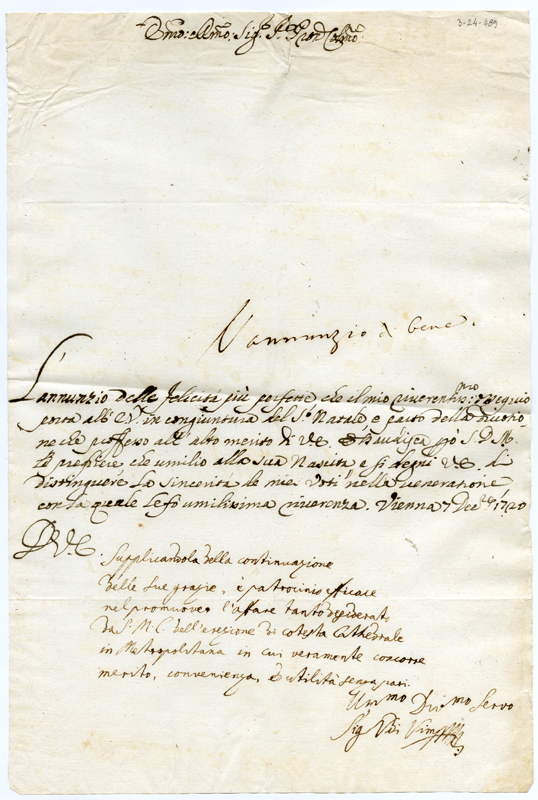 3-24-489
Emo: e Rmo: Sig.r Sig.r Pron Colmo:
L'annunzio di bene.
L'annunzio delle felicità più perfette che il mio riverentissmo: osequio
porta all' E.V. in congiuntura del S.o Natale, è parto della divotio
ne che professo all' alto merito di V.E. Gradisca pò S.D.M.
le preghiere, che umilio alla sua Nascita e si degni V.E. di
distinguere la sincerità de miei voti nella veneratione
con la quale le fò umilissima riverenza. Vienna 7 Dec.re 1720
D V.E.
Supplicandola della continuazione
delle sue grazie, e patrocinio efficace
nel promuover l'affare tanto desiderato
da S.M.C. dell'erezione di cotesta Cathedrale
in Metropolitana in cui veramente concorre
merito, convenienza, ed utilità senza pari.
Um.mo Div.mo Servo